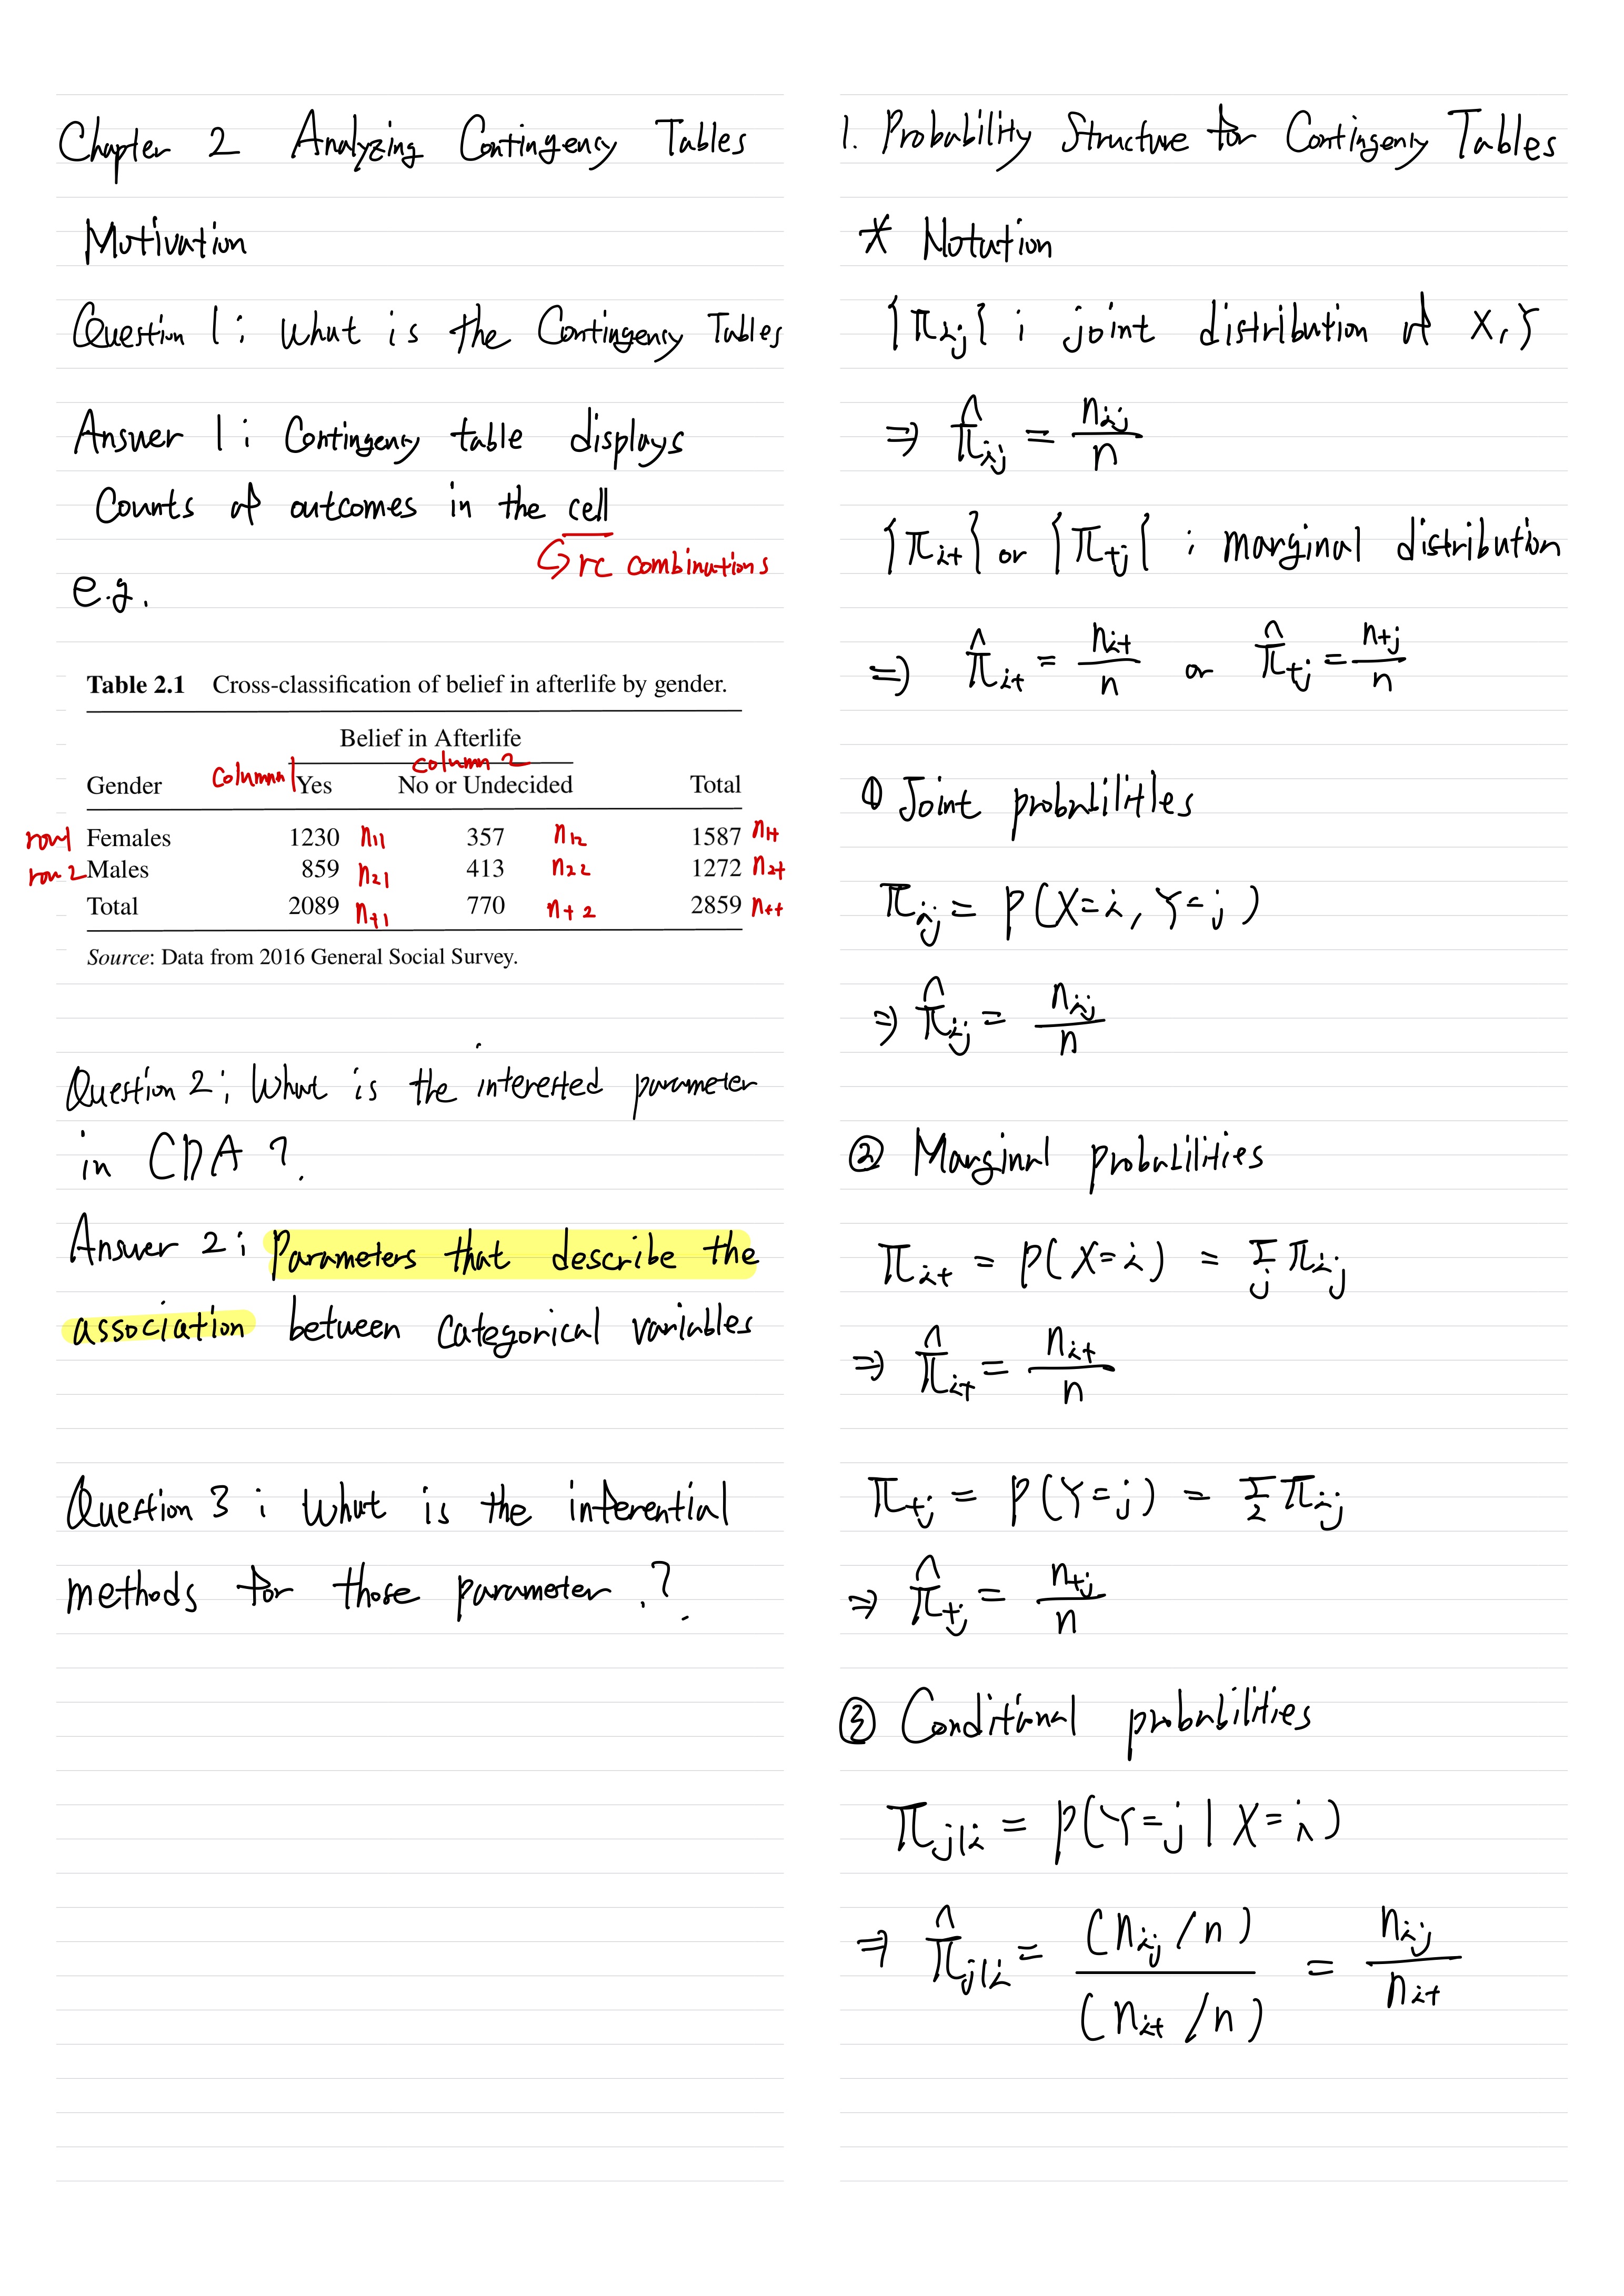 Chapter 2 Analyzing Contingency Tables
Motivation
Question 1 : What is the Contingency Tables
Answer 1 : Contingency table displays
Counts of outcomes in the cell
↳ rc combinations
e.g.
Table 2.1 Cross-classification of belief in afterlife by gender.
Belief in Afterlife
column 2
Gender column 1 Yes No or Undecided Total
row 1 Females 1230 n₁₁ 357 n₁₂ 1587 n₁₊
row 2 Males 859 n₂₁ 413 n₂₂ 1272 n₂₊
Total 2089 n₊₁ 770 n₊₂ 2859 n₊₊
Source: Data from 2016 General Social Survey.
Question 2 : What is the interested parameter
in CDA ?
Answer 2 : Parameters that describe the
association between categorical variables
Question 3 : What is the inferential
methods for those parameter . ?
1. Probability Structure for Contingency Tables
* Notation
{π_ij} : joint distribution of X, Y
⇒ π̂_ij = n_ij / n
{π_i+} or {π_+j} : marginal distribution
⇒ π̂_i+ = n_i+ / n or π̂_+j = n_+j / n
① Joint probabilities
π_ij = P(X=i, Y=j)
⇒ π̂_ij = n_ij / n
② Marginal probabilities
π_i+ = P(X=i) = Σ_j π_ij
⇒ π̂_i+ = n_i+ / n
π_+j = P(Y=j) = Σ_i π_ij
⇒ π̂_+j = n_+j / n
③ Conditional probabilities
π_j|i = P(Y=j | X=i)
⇒ π̂_j|i = (n_ij / n) / (n_i+ / n) = n_ij / n_i+